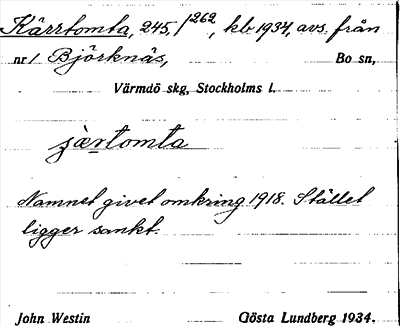 Kärrtomta, 245, 1262, kb 1934, avs. från
nr 1 Björknäs, Bo sn,
Värmdö skg, Stockholms l.
ɟærtomta
Namnet givet omkring 1918. Stället
ligger sankt.
John Westin Gösta Lundberg 1934.